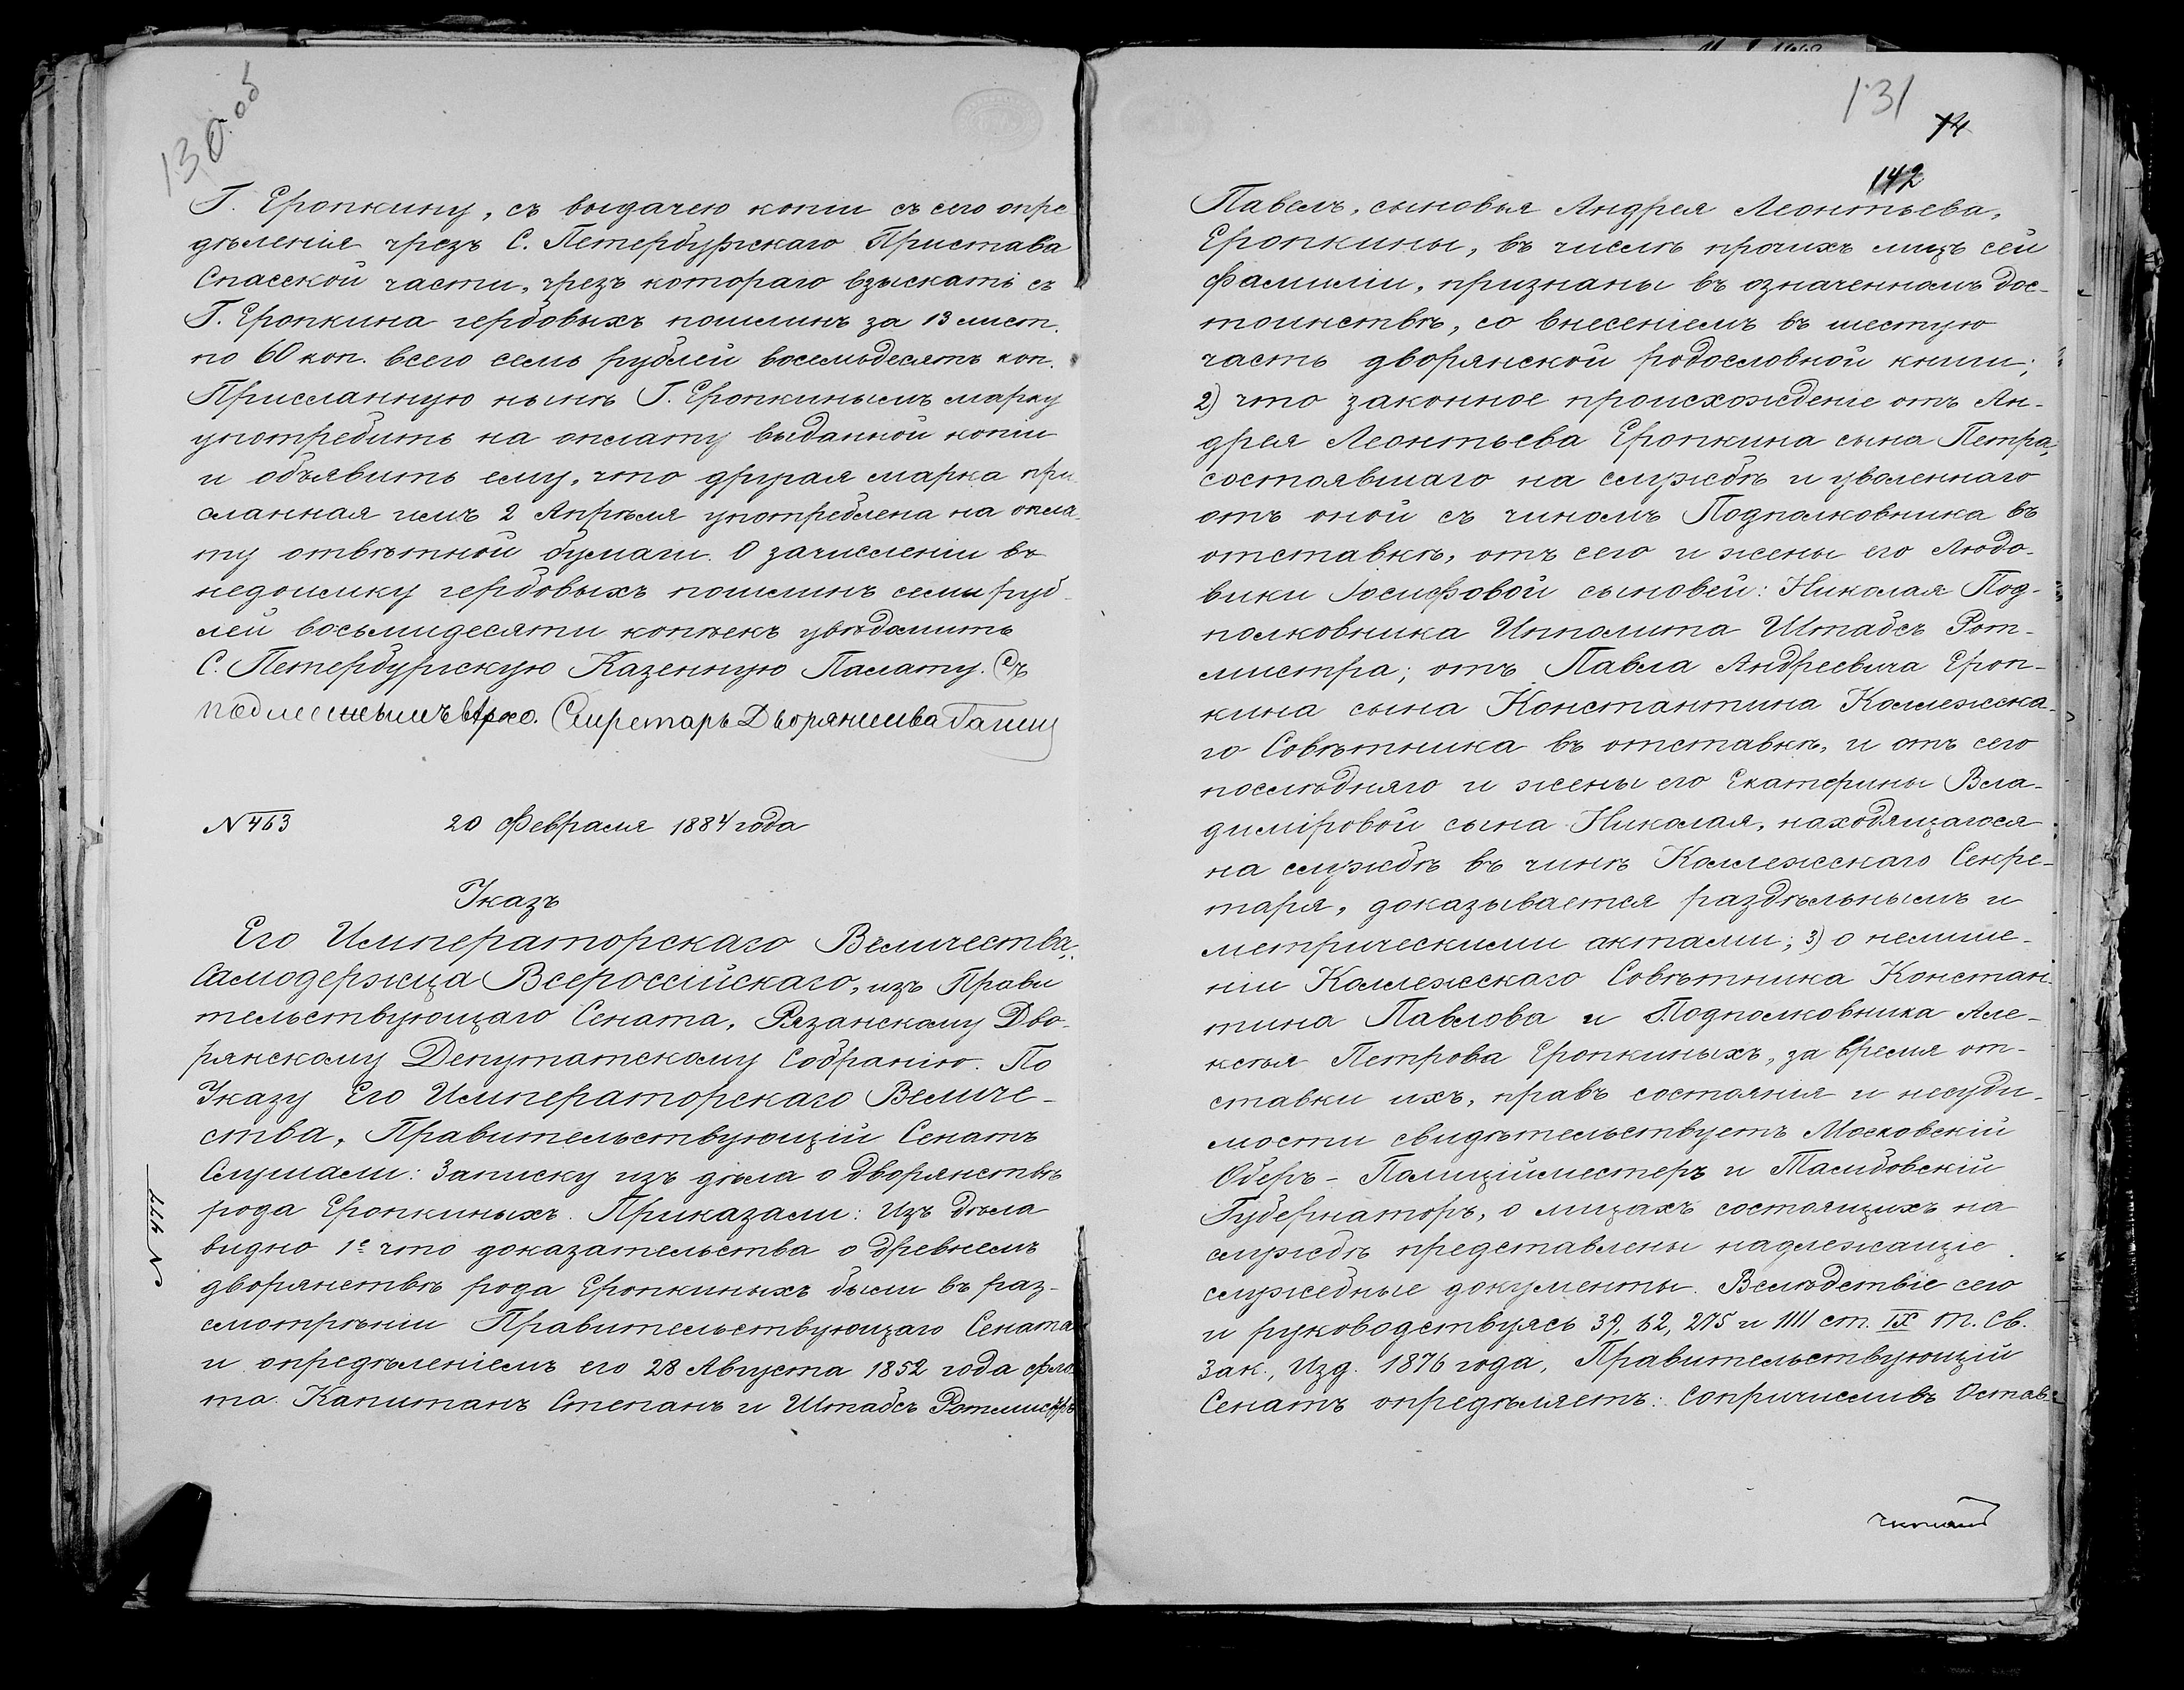 130 об
Г. Еропкину, съ выдачею копіи съ сего опре
дѣленія чрезъ С. Петербургскаго Пристава
Спасской части, чрезъ котораго взыскать съ
Г. Еропкина гербовыхъ пошлинъ за 13 лист.
по 60 коп. всего семь рублей восемьдесятъ коп.
Присланную нынѣ Г. Еропкинымъ марку
употребить на оплату выданной копіи
и объявить ему, что другая марка при
сланная имъ 2 Апрѣля употреблена на опла
ту отвѣтной бумаги. О зачисленіи въ
недоимку гербовыхъ пошлинъ семи руб-
лей восьмидесяти копѣекъ увѣдомить
С. Петербургскую Казенную Палату. Съ
подлиннымъ вѣрно. Секретарь Дворянства
N 463 20 Февраля 1884 года
Указъ
Его Императорскаго Величества,
Самодержца Всероссійскаго, изъ Прави
тельствующаго Сената, Рязанскому Дво-
рянскому Депутатскому Собранію. По
Указу Его Императорскаго Величе-
ства, Правительствующій Сенатъ
Слушали: Записку изъ дѣла о дворянствѣ
рода Еропкиныхъ. Приказали: Изъ дѣла
видно 1е что доказательства о древнемъ
дворянствѣ рода Еропкиныхъ были въ раз-
смотрѣніи Правительствующаго Сената
и опредѣленіемъ его 28 Августа 1852 года фло-
та Капитанъ Степанъ и Штабсъ Ротмистръ
131
74
142
Павелъ, сыновья Андрея Леонтьева,
Еропкины, въ числѣ прочихъ лицъ сей
фамиліи, признаны въ означенномъ дос-
тоинствѣ, со внесеніемъ въ шестую
часть дворянской родословной книги;
2) что законное происхожденіе отъ Ан-
дрея Леонтьева Еропкина сына Петра,
состоявшаго на службѣ и уволеннаго
отъ оной съ чиномъ Подполковника въ
отставкѣ, отъ сего и жены его Людо-
вики Іосифовой сыновей: Николая Под-
полковника Ипполита Штабсъ Рот-
мистра; отъ Павла Андреевича Ероп-
кина сына Константина Коллежска-
го Совѣтника въ отставкѣ, и отъ сего
послѣдняго и жены его Екатерины Вла-
диміровой сына Николая, находящагося
на службѣ въ чинѣ Коллежскаго Секре-
таря, доказывается раздѣльнымъ и
метрическими актами; 3) о нелише-
ніи Коллежскаго Совѣтника Констан-
тина Павлова и Подполковника Але-
ксѣя Петрова Еропкиныхъ, за время от-
ставки ихъ, правъ состоянія и несуди-
мости свидѣтельствуетъ Московскій
Оберъ-Полицiймейстеръ и Тамбовскій
Губернаторъ, о лицахъ состоящихъ на
службѣ представлены надлежащіе
служебные документы. Вслѣдствіе сего
и руководствуясь 39, 62, 275 и 1111 ст. IX т. Св.
Зак., Изд. 1876 года, Правительствующій
Сенатъ опредѣляетъ: Сопричисливъ Остав-